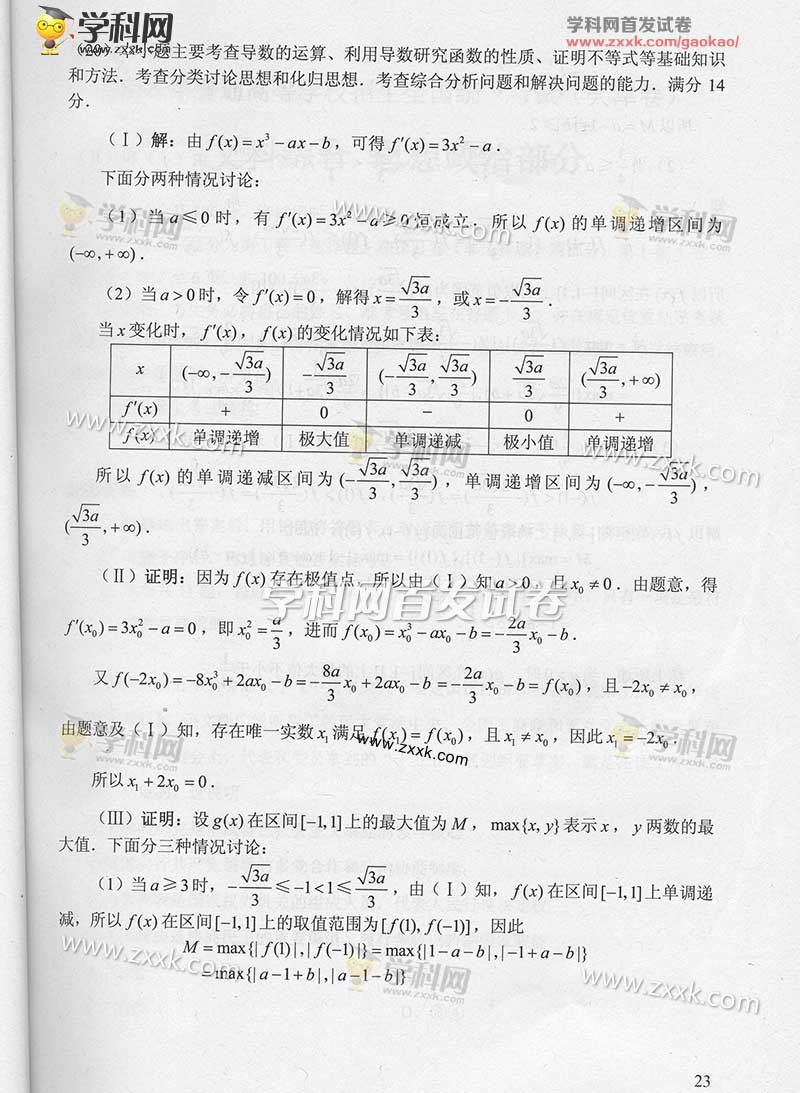 学科网
www.zxxk.com
学科网首发试卷
www.zxxk.com/gaokao/
(20) 本小题主要考查导数的运算、利用导数研究函数的性质、证明不等式等基础知识
和方法．考查分类讨论思想和化归思想．考查综合分析问题和解决问题的能力．满分 14
分．
（Ⅰ）解：由 f(x)=x³−ax−b，可得 f′(x)=3x²−a．
下面分两种情况讨论：
（1）当 a≤0 时，有 f′(x)=3x²−a≥0 恒成立．所以 f(x) 的单调递增区间为
(−∞,+∞)．
（2）当 a>0 时，令 f′(x)=0，解得 x=√(3a)/3，或 x=−√(3a)/3．
当 x 变化时，f′(x)，f(x) 的变化情况如下表：
x (−∞,−√(3a)/3) −√(3a)/3 (−√(3a)/3,√(3a)/3) √(3a)/3 (√(3a)/3,+∞)
f′(x) + 0 − 0 +
f(x) 单调递增 极大值 单调递减 极小值 单调递增
所以 f(x) 的单调递减区间为 (−√(3a)/3,√(3a)/3)，单调递增区间为 (−∞,−√(3a)/3)，
(√(3a)/3,+∞)．
（Ⅱ）证明：因为 f(x) 存在极值点，所以由（Ⅰ）知 a>0，且 x₀≠0．由题意，得
f′(x₀)=3x₀²−a=0，即 x₀²=a/3，进而 f(x₀)=x₀³−ax₀−b=−(2a/3)x₀−b．
又 f(−2x₀)=−8x₀³+2ax₀−b=−(8a/3)x₀+2ax₀−b=−(2a/3)x₀−b=f(x₀)，且−2x₀≠x₀，
由题意及（Ⅰ）知，存在唯一实数 x₁ 满足 f(x₁)=f(x₀)，且 x₁≠x₀，因此 x₁=−2x₀．
所以 x₁+2x₀=0．
（Ⅲ）证明：设 g(x) 在区间[−1,1]上的最大值为 M，max{x, y}表示 x，y 两数的最
大值．下面分三种情况讨论：
（1）当 a≥3 时，−√(3a)/3≤−1<1≤√(3a)/3，由（Ⅰ）知，f(x) 在区间[−1,1]上单调递
减，所以 f(x) 在区间[−1,1]上的取值范围为[f(1), f(−1)]，因此
M=max{|f(1)|,|f(−1)|}=max{|1−a−b|,|−1+a−b|}
=max{|a−1+b|,|a−1−b|}
23